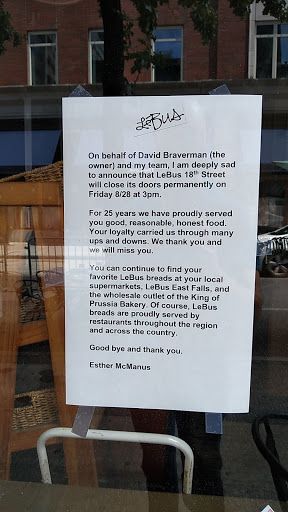 LeBus
On behalf of David Braverman (the
owner) and my team, I am deeply sad
to announce that LeBus 18th Street
will close its doors permanently on
Friday 8/28 at 3pm.
For 25 years we have proudly served
you good, reasonable, honest food.
Your loyalty carried us through many
ups and downs. We thank you and
we will miss you.
You can continue to find your
favorite LeBus breads at your local
supermarkets, LeBus East Falls, and
the wholesale outlet of the King of
Prussia Bakery. Of course, LeBus
breads are proudly served by
restaurants throughout the region
and across the country.
Good bye and thank you.
Esther McManus